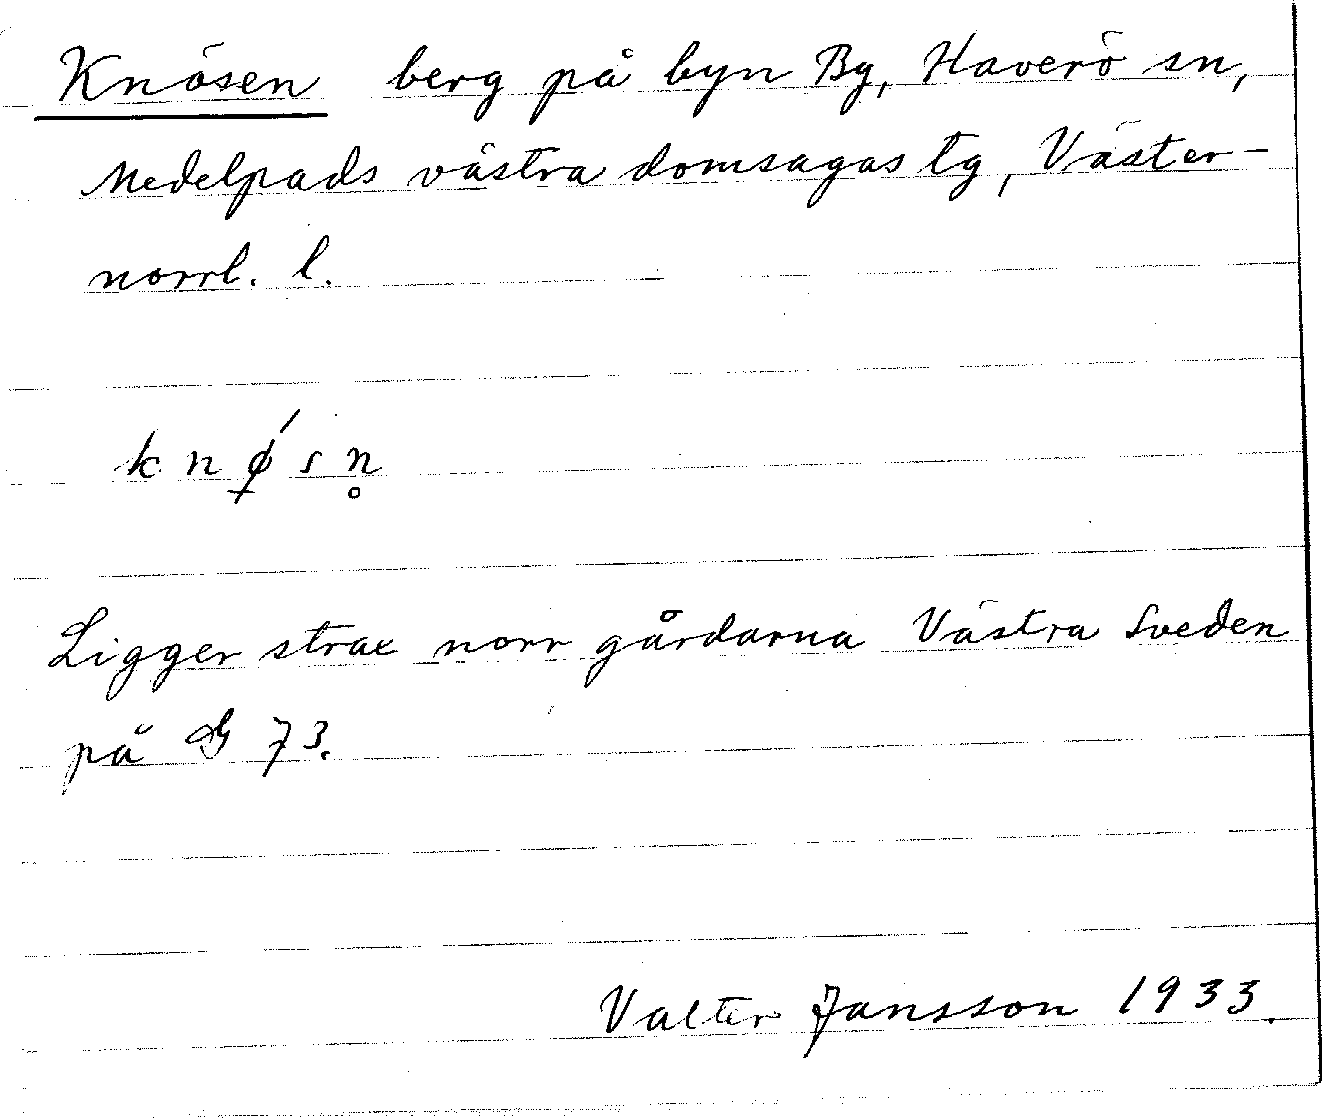 Knösen berg på byn By, Haverö sn,
Medelpads västra domsagas tg, Väster-
norrl. l.
knǿsn̥
Ligger strax norr gårdarna Västra Sveden
på G 73.
Valter Jansson 1933.